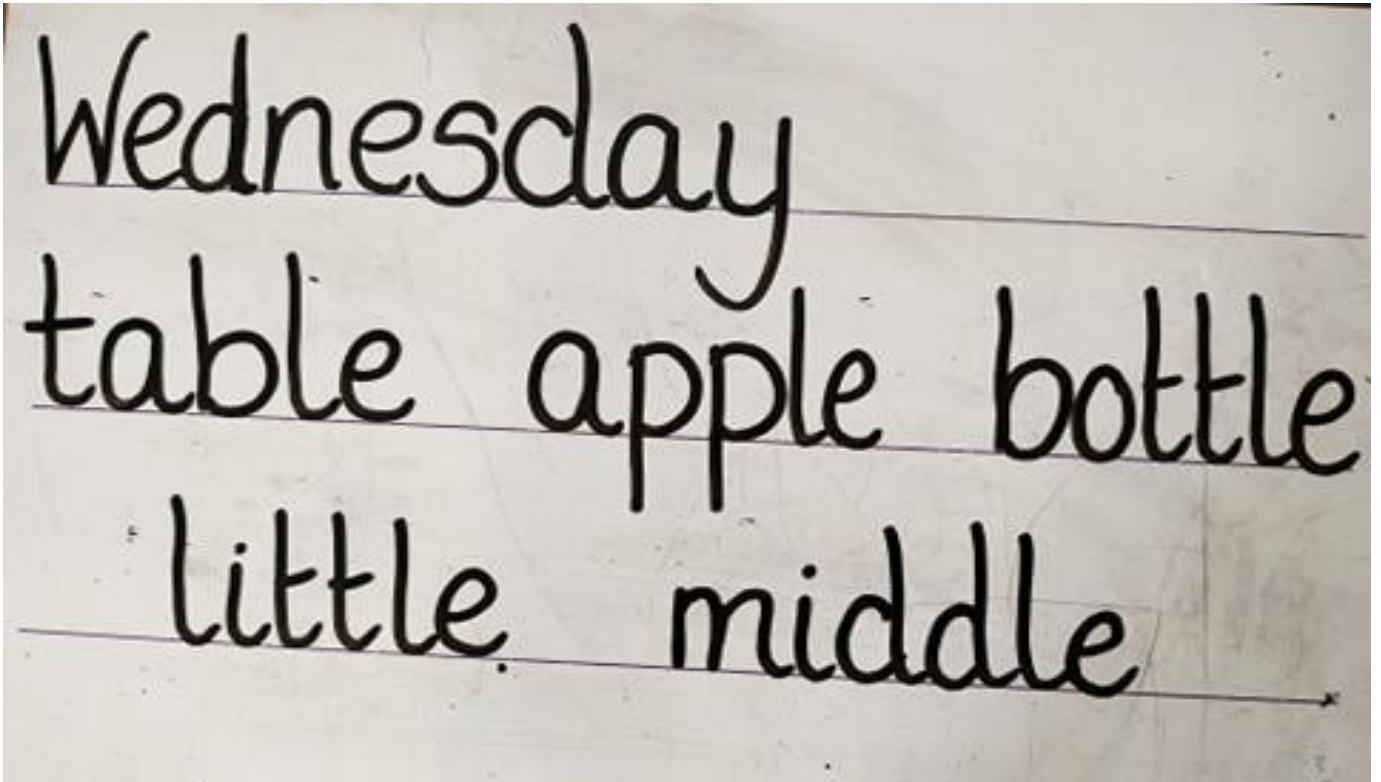 Wednesday
table apple bottle
little middle